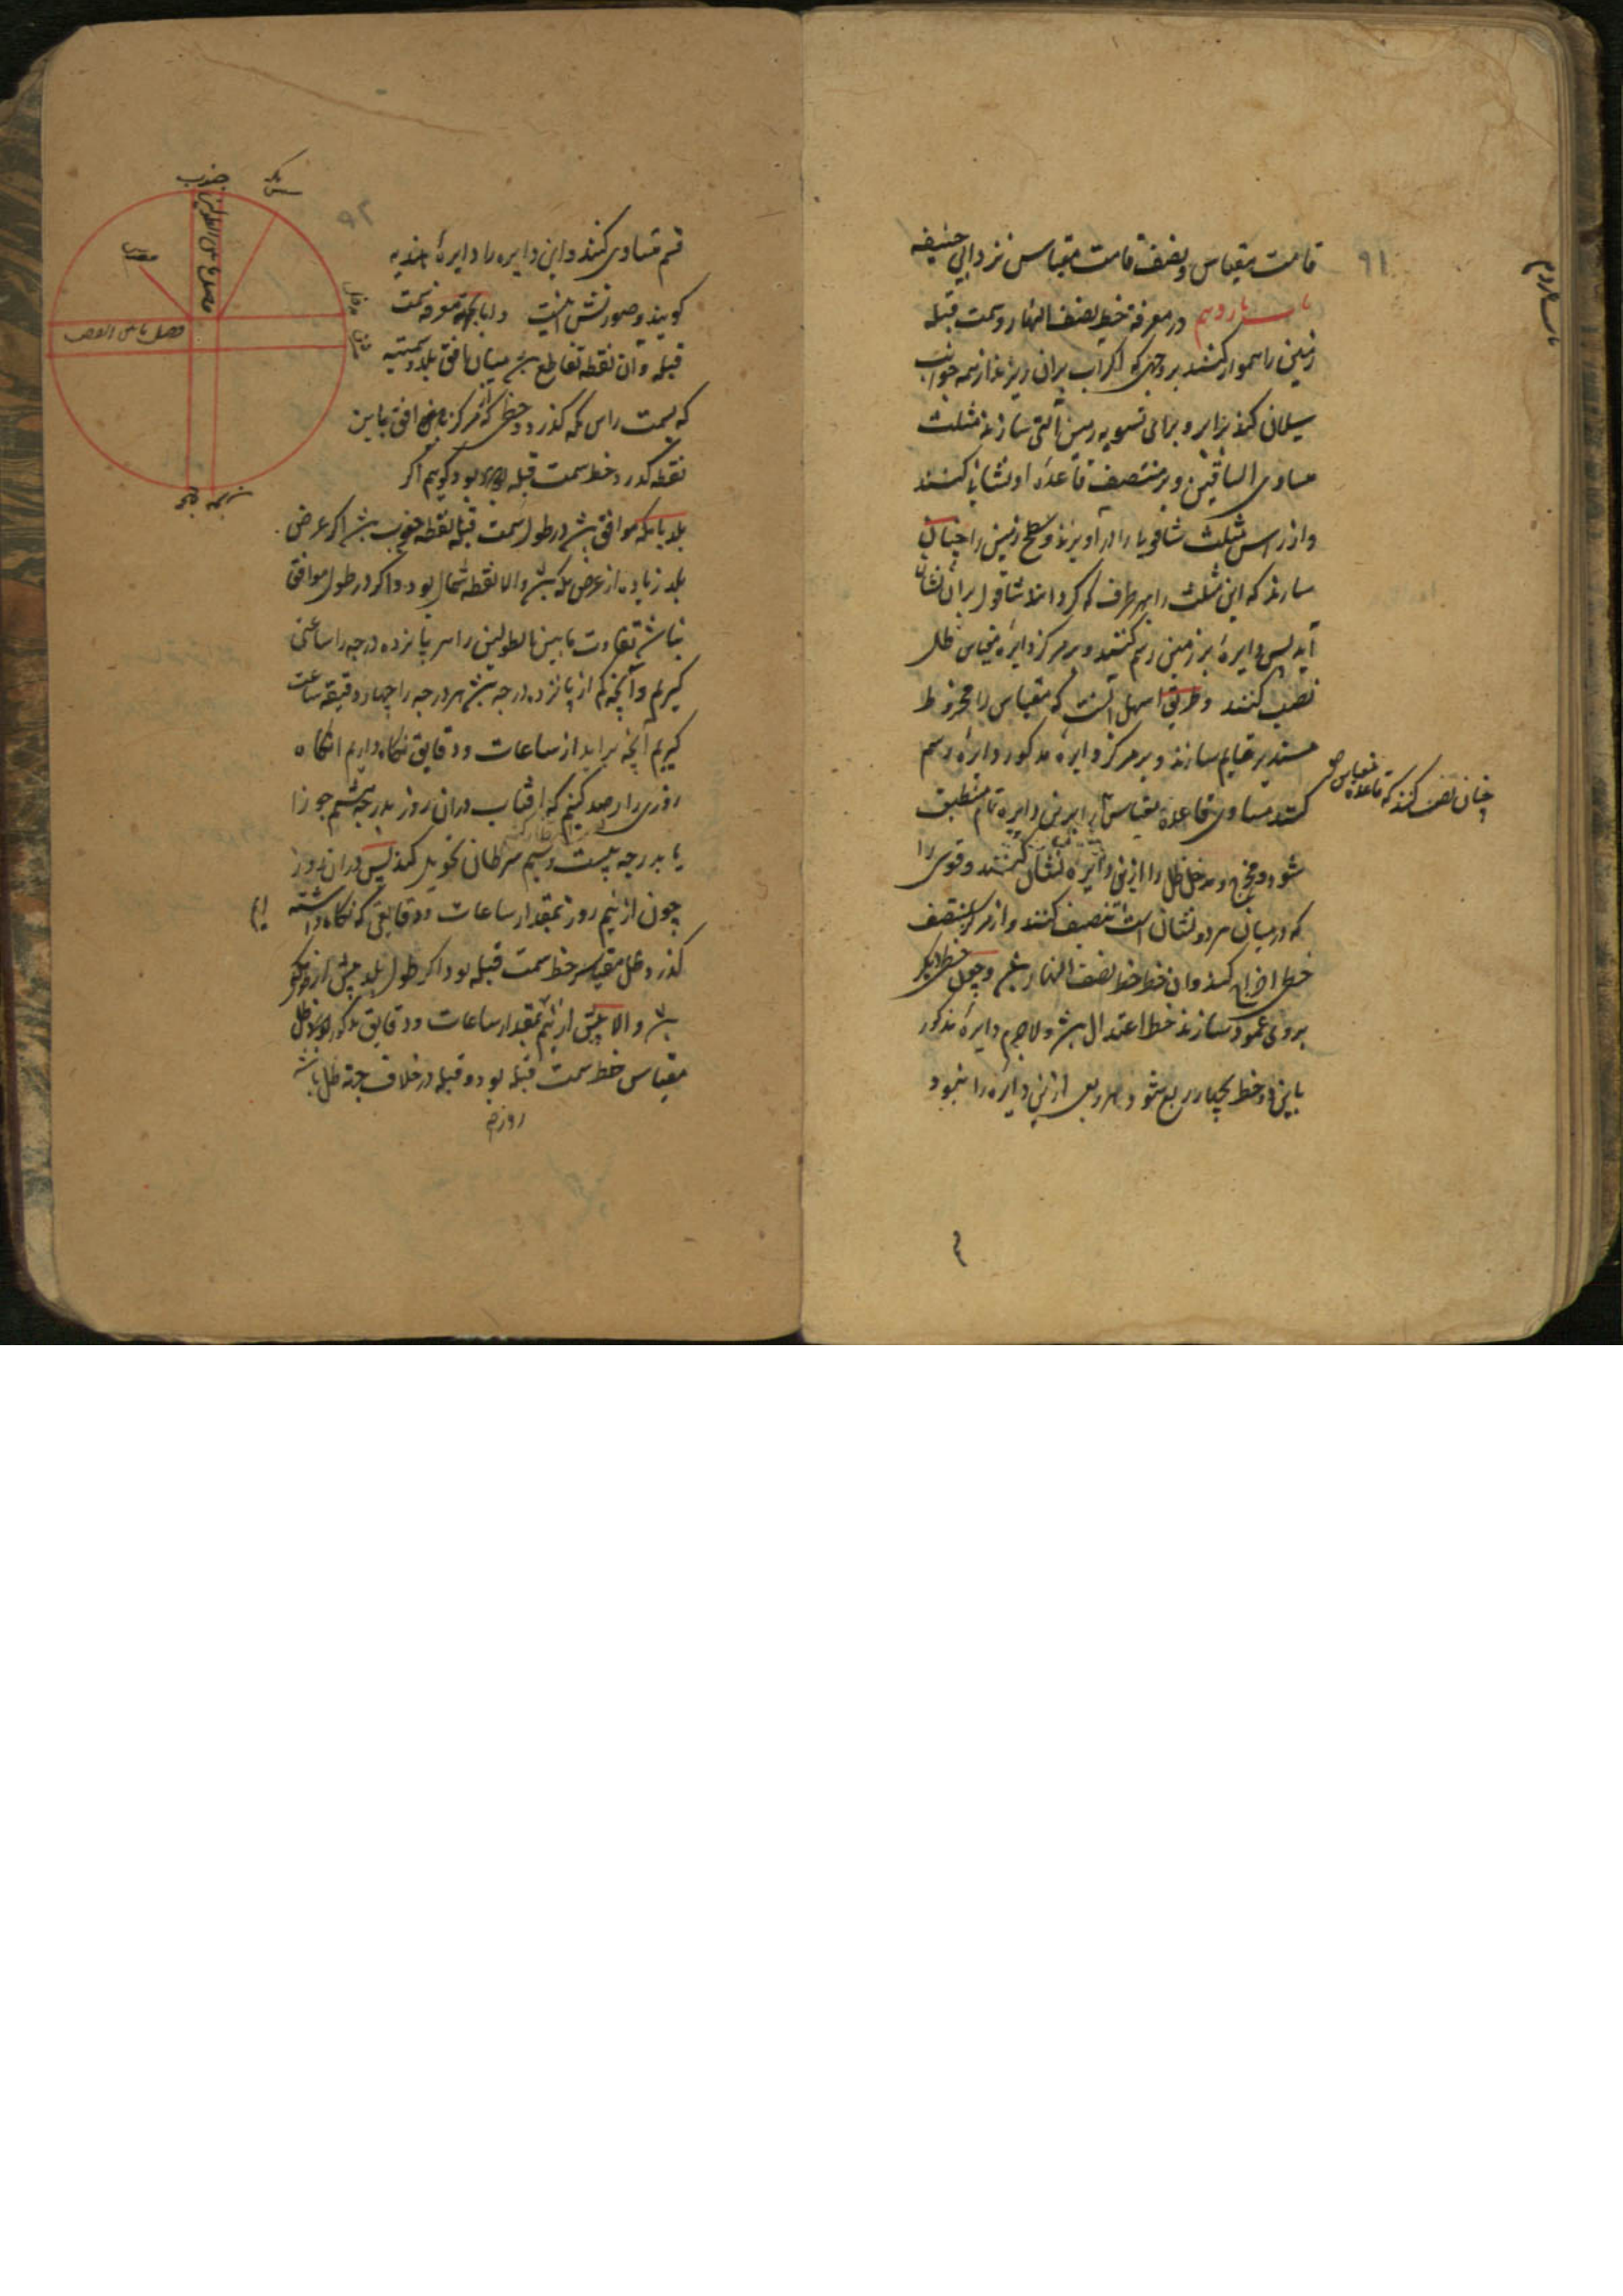 ۹۱
قامت مقیاس و نصف قامت مقیاس نزد ابی حنیفه
باب یازدهم در معرفة خط نصف النهار و سمت قبله
زمین را هموار کنند بر وجهی که اگر آب بران ریزند از همه جوانب
سیلان کند برابر و برای تسویه زمین آلتی سازند مثلث
مساوی الساقین و بر منتصف قاعدهٔ او نشانی کنند
و از راس مثلث شاقولی را در آویزند و سطح زمین را چنان
سازند که این مثلث را بهر طرف که گردانند شاقول بران نشان
آید پس دایرهٔ بر زمین رسم کنند و بر مرکز دایره مقیاس ظل
نصب کنند و طریق اسهل آنست که مقیاس را مخروط
مستدیر قایم سازند و بر مرکز دایره مذکور دایره رسم
کنند مساوی قاعدهٔ مقیاس برین دایره تمام منطبق
چنان نصب کنند که قاعده مقیاس
شود و مخرج و مدخل ظل را ازین دایره نشان کنند و قوسی را
که در میان هر دو نشان است تنصیف کنند و از مرکز بمنتصف
خطی اخراج کنند و ان خط خط نصف النهار باشد و چون خطی دیگر
بروی عمود سازند خط اعتدال باشد و لاجرم دایرهٔ مذکور
باین دو خط بچهار ربع شود و هر ربعی ازین دایره را بنود
قسم متساوی کنند و این دایره را دایرهٔ هندیه
گویند و صورتش اینست و اما معرفه سمت
قبله و ان نقطه تقاطع باشد میان افق بلد و سمتیه
که بسمت راس مکه گذرد و خطی که از مرکز افق باین
نقطه گذرد خط سمت قبله بود گوییم اگر
بلد با مکه موافق باشد در طول سمت قبله نقطه جنوب باشد اگر عرض
بلد زیاده از عرض مکه باشد و الا نقطه شمال بود و اگر در طول موافق
نباشد تفاوت ما بین الطولین را هر پانزده درجه را ساعتی
گیریم و آنچه کم از پانزده درجه باشد هر درجه را چهار دقیقه ساعت
گیریم آنچه براید از ساعات و دقایق نگاه داریم انگاه
روزی را رصد کنیم که افتاب دران روز بدرجه هشتم جوزا
یا بدرجه بیست و سیم سرطان تحویل کند پس دران روز
چون از نیم روز بمقدار ساعات و دقایقی که نگاه داشته ایم
گذرد ظل مقیاس خط سمت قبله بود اگر طول بلد بیش از طول مکه
باشد و الا پیش از نیم بمقدار ساعات و دقایق مذکور ظل
مقیاس خط سمت قبله بود و قبله در خلاف جهة ظل باشد
روز
جنوب
مکه